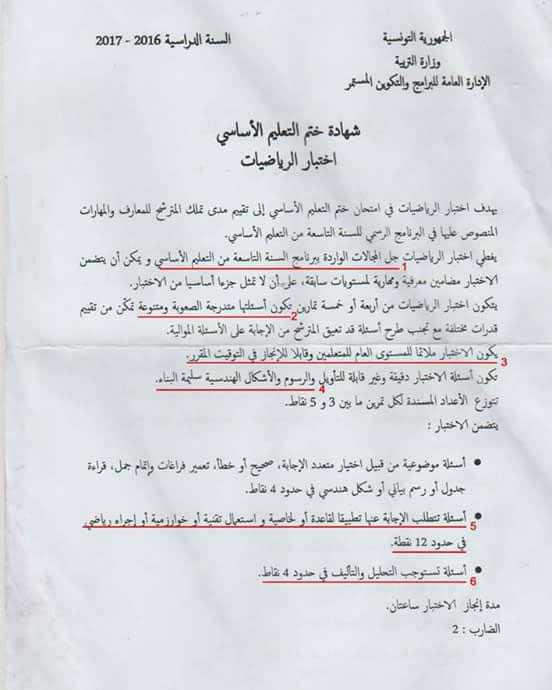 الجمهورية التونسية
وزارة التربية
الإدارة العامة للبرامج والتكوين المستمر
السنة الدراسية 2016 - 2017
شهادة ختم التعليم الأساسي
اختبار الرياضيات
يهدف اختبار الرياضيات في امتحان ختم التعليم الأساسي إلى تقييم مدى تملك المترشح للمعارف والمهارات
المنصوص عليها في البرنامج الرسمي للسنة التاسعة من التعليم الأساسي.
يغطي اختبار الرياضيات جل المجالات الواردة ببرنامج السنة التاسعة من التعليم الأساسي و يمكن أن يتضمن
1
الاختبار مضامين معرفية ومهارية لمستويات سابقة، على أن لا تمثل جزءا أساسيا من الاختبار.
يتكون اختبار الرياضيات من أربعة أو خمسة تمارين تكون أسئلتها متدرجة الصعوبة ومتنوعة تمكّن من تقييم
2
قدرات مختلفة مع تجنب طرح أسئلة قد تعيق المترشح من الإجابة على الأسئلة الموالية.
يكون الاختبار ملائما للمستوى العام للمتعلمين وقابلا للإنجاز في التوقيت المقرر.
3
تكون أسئلة الاختبار دقيقة وغير قابلة للتأويل والرسوم والأشكال الهندسية سليمة البناء.
4
تتوزع الأعداد المسندة لكل تمرين ما بين 3 و 5 نقاط.
يتضمن الاختبار :
• أسئلة موضوعية من قبيل اختيار متعدد الإجابة، صحيح أو خطأ، تعمير فراغات وإتمام جمل، قراءة
جدول أو رسم بياني أو شكل هندسي في حدود 4 نقاط.
• أسئلة تتطلب الإجابة عنها تطبيقا لقاعدة أو لخاصية و استعمال تقنية أو خوارزمية أو إجراء رياضي
5
في حدود 12 نقطة.
• أسئلة تستوجب التحليل والتأليف في حدود 4 نقاط.
6
مدة إنجاز الاختبار ساعتان.
الضارب : 2